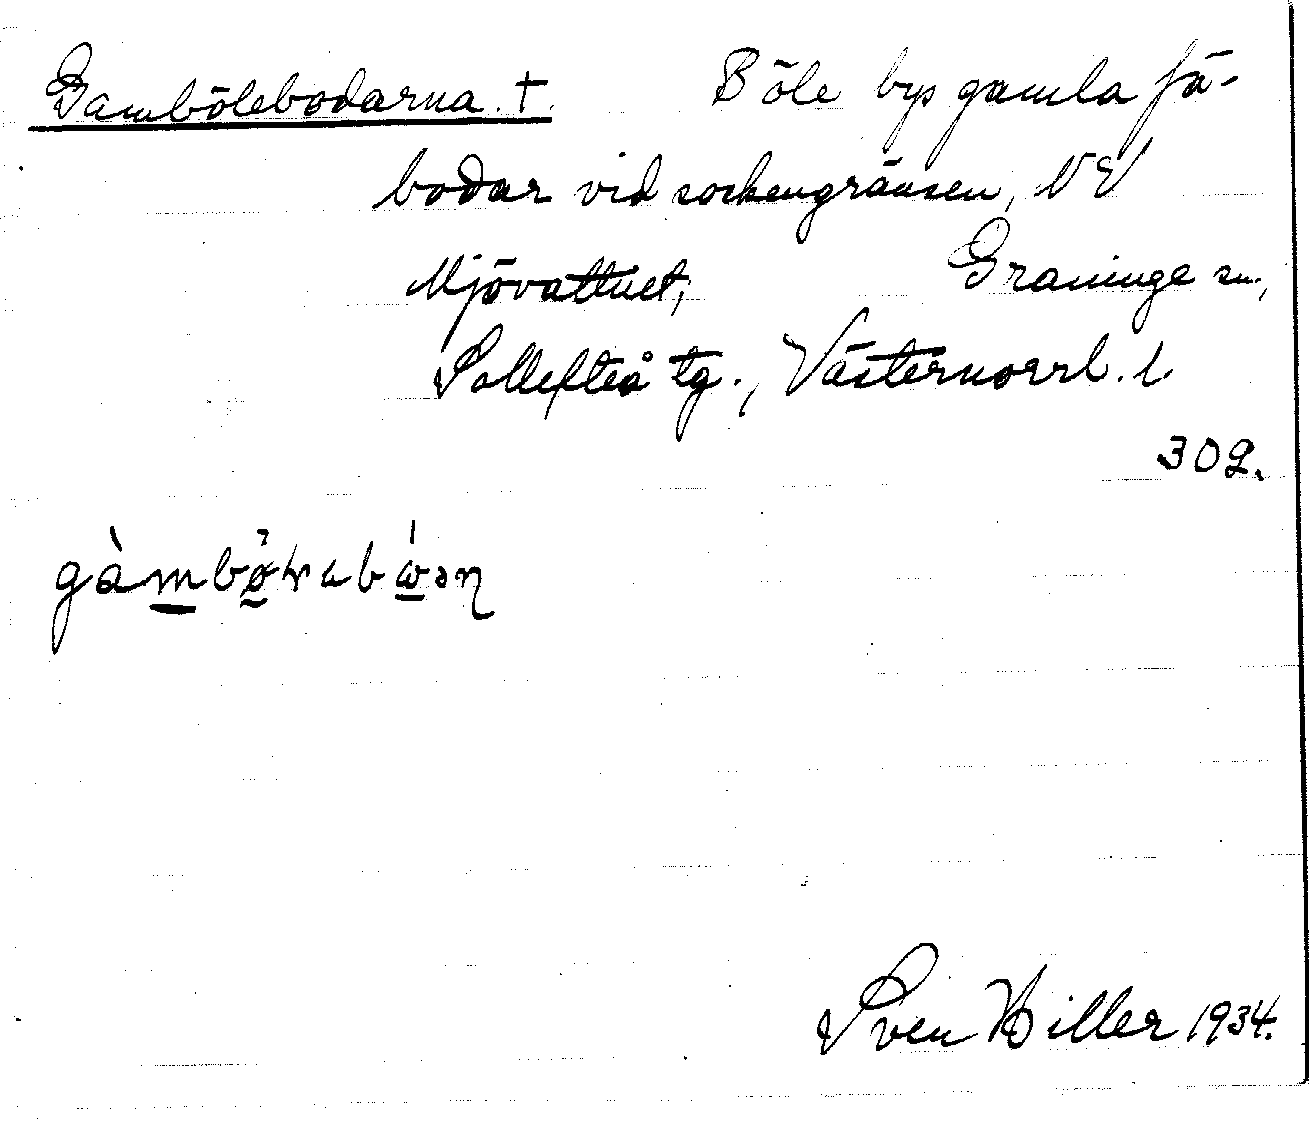 Gambölebodarna. †. Böle bys gamla fä-
bodar vid sockengränsen, NV
Mjövattnet, Graninge sn.,
Sollefteå tg., Västernorrl. l
302.
Sven Hiller 1934.